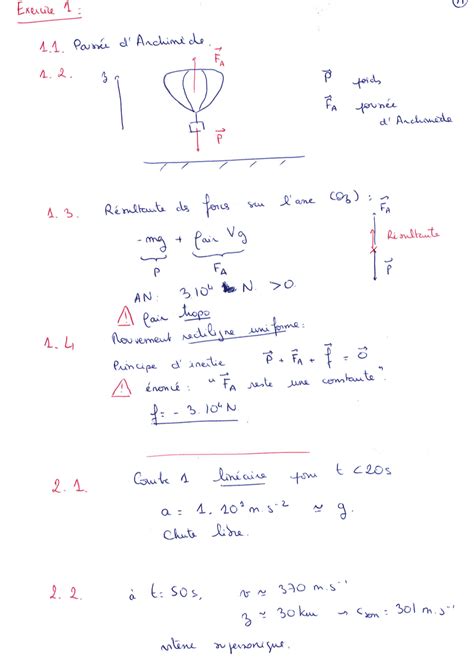 Exercice 1 :
1.1. Poussée d'Archimède.
1.2. z F_A P⃗ poids
F⃗_A poussée d'Archimède
P⃗
1.3. Résultante des forces sur l'axe (Oz) : F⃗_A
-mg + ρair Vg Résultante
P F_A P⃗
AN : 3 10⁴ N. > 0.
⚠ ρair typo
1.4 Mouvement rectiligne uniforme :
Principe d'inertie P⃗ + F⃗_A + f⃗ = 0⃗
⚠ énoncé : "F⃗_A reste une constante".
f = - 3. 10⁴ N
2.1. Courbe 1 linéaire pour t < 20s
a = 1. 10¹ m s⁻² ≃ g.
Chute libre.
2.2. à t = 50s, v ≃ 370 m.s⁻¹
z ≃ 30 km → cson = 301 m.s⁻¹
vitesse supersonique.